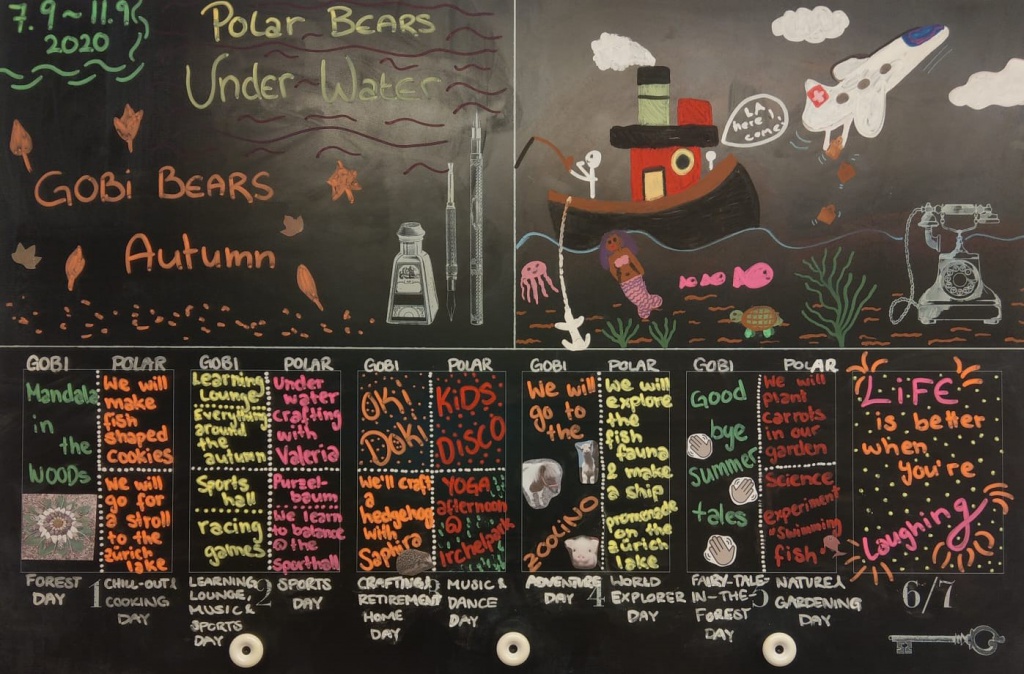 7.9 ~ 11.9
2020
POLAR BEARS
Under Water
GOBI BEARS
Autumn
LA,
here I
come!
GOBI
POLAR
Mandala
in
the
WOODS
We will
make
fish
shaped
cookies
We will
go for
a stroll
to the
zürich
lake
FOREST
DAY
1
CHILL-OUT &
COOKING
DAY
GOBI
POLAR
Learning
Lounge
Everything
around
the
autumn
Sports
hall
racing
games
Under
water
crafting
with
Valeria
Purzel-
baum
We learn
to balance
@ the
Sporthall
LEARNING
LOUNGE,
MUSIC &
SPORTS
DAY
2
SPORTS
DAY
GOBI
POLAR
OKI
DOKI
We'll craft
a
hedgehog
with
Saphira
KIDS
DISCO
YOGA
afternoon
@
Irchelpark
CRAFTING &
RETIREMENT
HOME
DAY
3
MUSIC &
DANCE
DAY
GOBI
POLAR
We will
go to
the
ZOOLINO
We will
explore
the
fish
fauna
& make
a ship
promenade
on the
zürich
lake
ADVENTURE
DAY
4
WORLD
EXPLORER
DAY
GOBI
POLAR
Good
bye
summer
tales
We will
plant
carrots
in our
garden
Science
experiment
"Swimming
fish"
FAIRY-TALE-
IN-THE-
FOREST
DAY
5
NATURE &
GARDENING
DAY
LiFE
is better
when
you're
Laughing
6/7